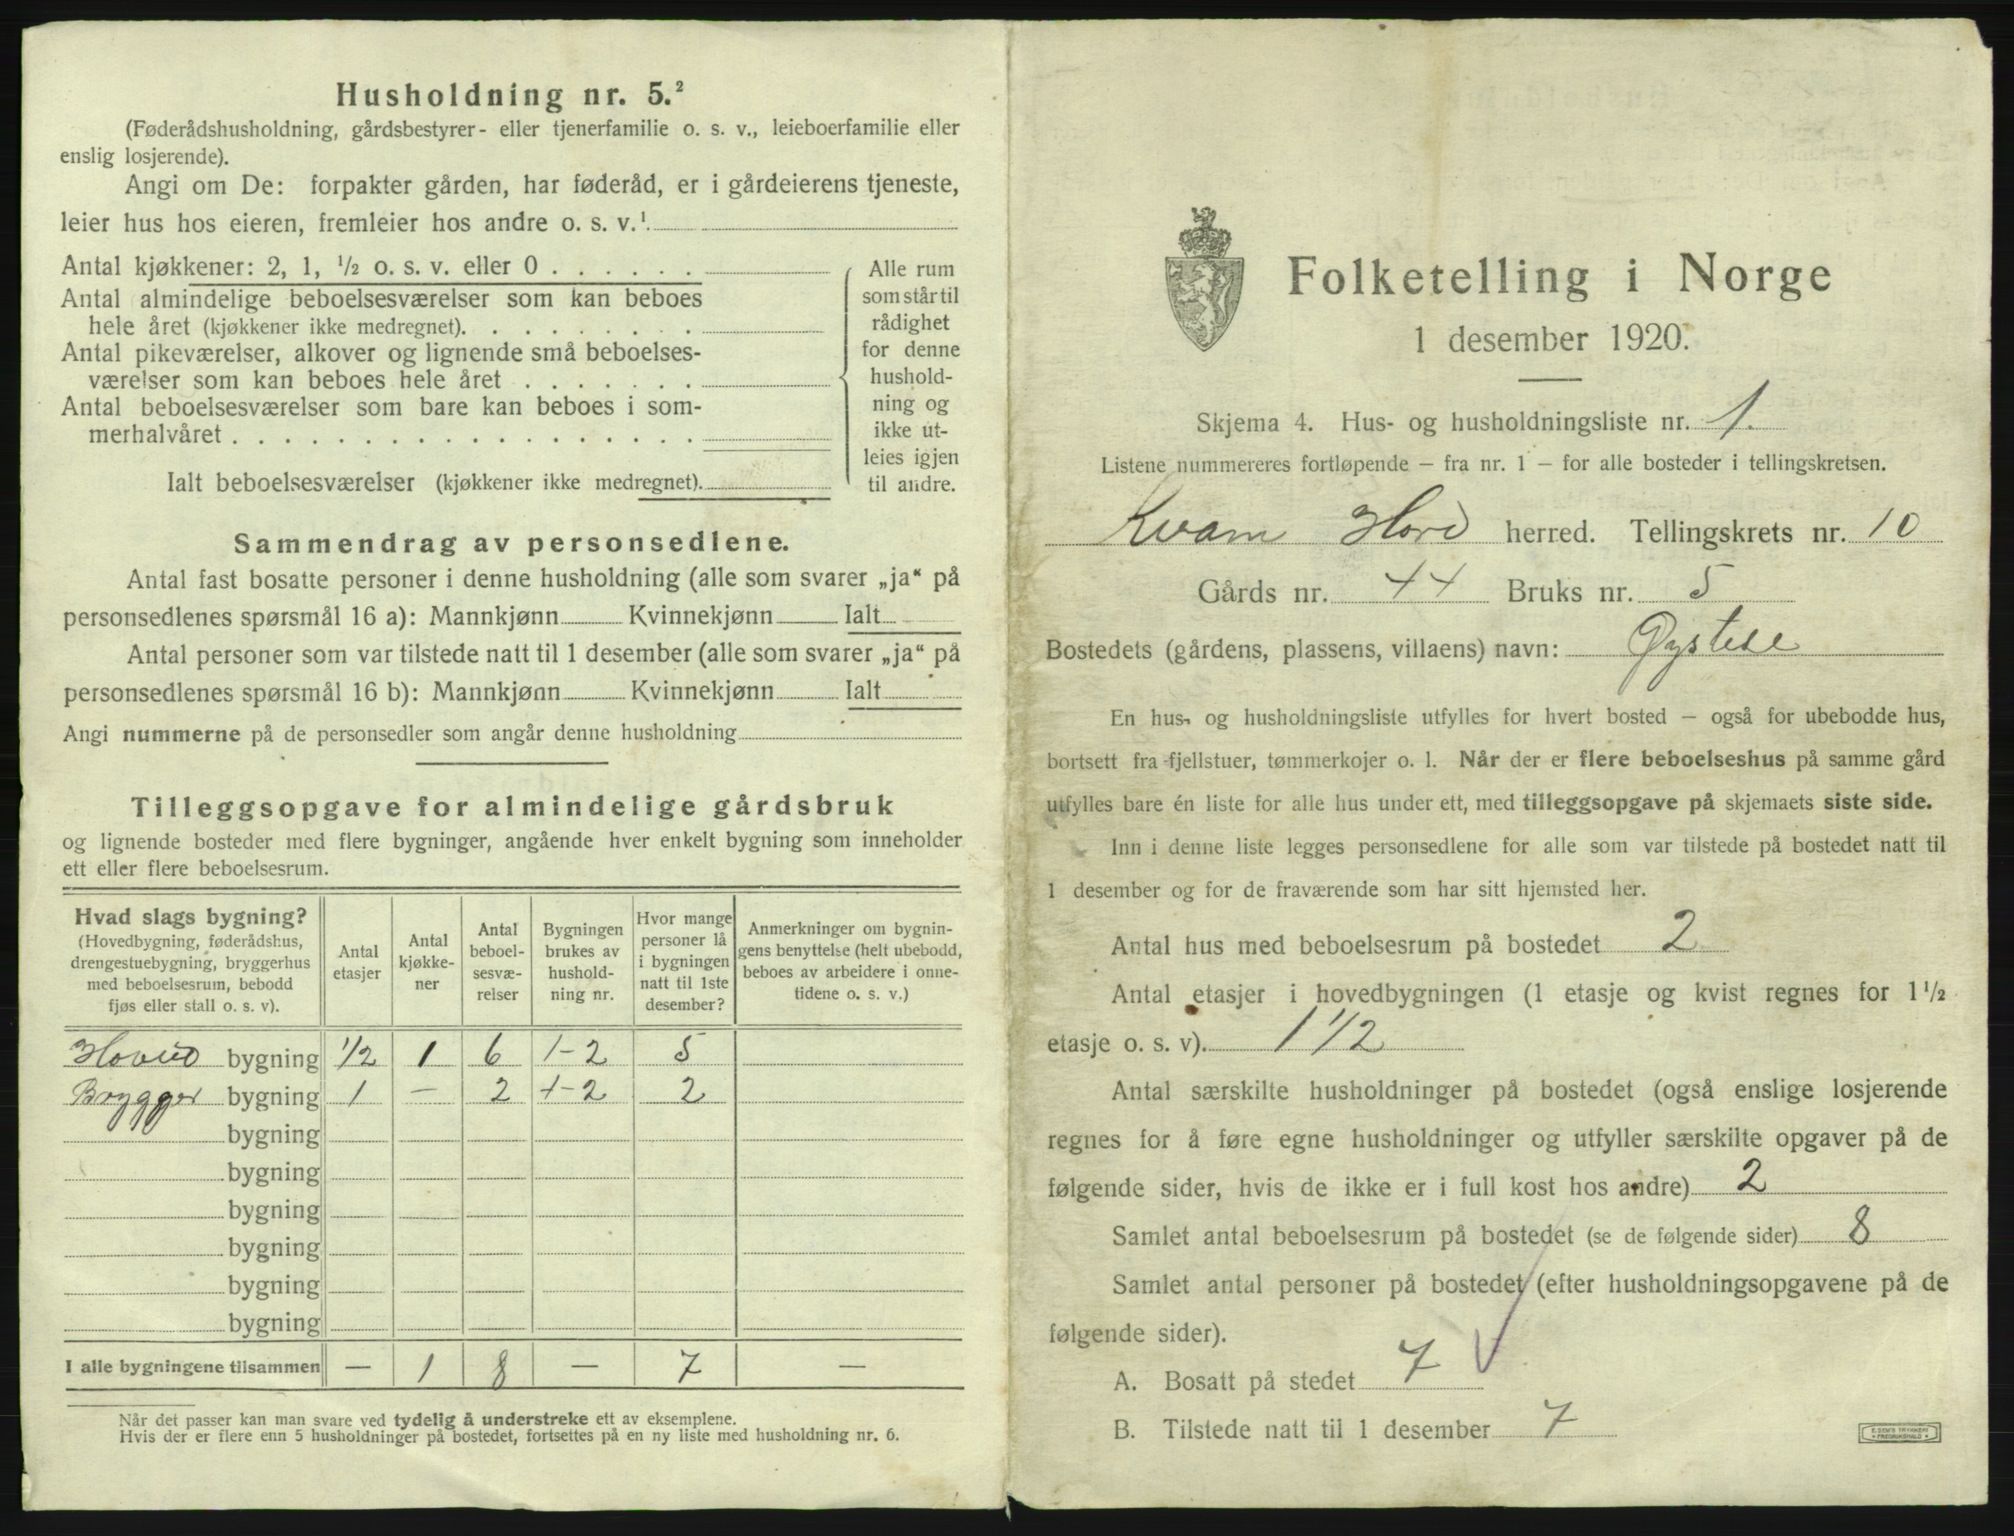 Husholdning nr. 5.²
(Føderådshusholdning, gårdsbestyrer- eller tjenerfamilie o. s. v., leieboerfamilie eller
enslig losjerende).
Angi om De: forpakter gården, har føderåd, er i gårdeierens tjeneste,
leier hus hos eieren, fremleier hos andre o. s. v.¹
Antal kjøkkener: 2, 1, ½ o. s. v. eller 0 . . . . . .
Antal almindelige beboelsesværelser som kan beboes
hele året (kjøkkener ikke medregnet). . . . . . . . .
Antal pikeværelser, alkover og lignende små beboelses-
værelser som kan beboes hele året . . . . . . .
Antal beboelsesværelser som bare kan beboes i som-
merhalvåret . . . . . . . . . . . . . . . . . .
Ialt beboelsesværelser (kjøkkener ikke medregnet).
Alle rum
som står til
rådighet
for denne
hushold-
ning og
ikke ut-
leies igjen
til andre.
Sammendrag av personsedlene.
Antal fast bosatte personer i denne husholdning (alle som svarer „ja“ på
personsedlenes spørsmål 16 a): Mannkjønn Kvinnekjønn Ialt
Antal personer som var tilstede natt til 1 desember (alle som svarer „ja“ på
personsedlenes spørsmål 16 b): Mannkjønn Kvinnekjønn Ialt
Angi nummerne på de personsedler som angår denne husholdning
Tilleggsopgave for almindelige gårdsbruk
og lignende bosteder med flere bygninger, angående hver enkelt bygning som inneholder
ett eller flere beboelsesrum.
Hvad slags bygning?
(Hovedbygning, føderådshus,
drengestuebygning, bryggerhus
med beboelsesrum, bebodd
fjøs eller stall o. s. v).
Antal
etasjer
Antal
kjøkke-
ner
Antal
beboel-
sesvæ-
relser
Bygningen
brukes av
hushold-
ning nr.
Hvor mange
personer lå
i bygningen
natt til 1ste
desember?
Anmerkninger om bygnin-
gens benyttelse (helt ubebodd,
beboes av arbeidere i onne-
tidene o. s. v.)
Hoved bygning 1/2 1 6 1-2 5
Brygger bygning 1 — 2 1-2 2
bygning
bygning
bygning
bygning
bygning
bygning
I alle bygningene tilsammen — 1 8 — 7 —
Når det passer kan man svare ved tydelig å understreke ett av eksemplene.
Hvis der er flere enn 5 husholdninger på bostedet, fortsettes på en ny liste med husholdning nr. 6.
Folketelling i Norge
1 desember 1920.
Skjema 4. Hus- og husholdningsliste nr. 1.
Listene nummereres fortløpende – fra nr. 1 – for alle bosteder i tellingskretsen.
Kvam Hord herred. Tellingskrets nr. 10
Gårds nr. 44 Bruks nr. 5
Bostedets (gårdens, plassens, villaens) navn: Øystese
En hus- og husholdningsliste utfylles for hvert bosted – også for ubebodde hus,
bortsett fra fjellstuer, tømmerkojer o. l. Når der er flere beboelseshus på samme gård
utfylles bare én liste for alle hus under ett, med tilleggsopgave på skjemaets siste side.
Inn i denne liste legges personsedlene for alle som var tilstede på bostedet natt til
1 desember og for de fraværende som har sitt hjemsted her.
Antal hus med beboelsesrum på bostedet 2
Antal etasjer i hovedbygningen (1 etasje og kvist regnes for 1½
etasje o. s. v). 1 1/2
Antal særskilte husholdninger på bostedet (også enslige losjerende
regnes for å føre egne husholdninger og utfyller særskilte opgaver på de
følgende sider, hvis de ikke er i full kost hos andre) 2
Samlet antal beboelsesrum på bostedet (se de følgende sider) 8
Samlet antal personer på bostedet (efter husholdningsopgavene på de
følgende sider).
A. Bosatt på stedet 7
B. Tilstede natt til 1 desember 7